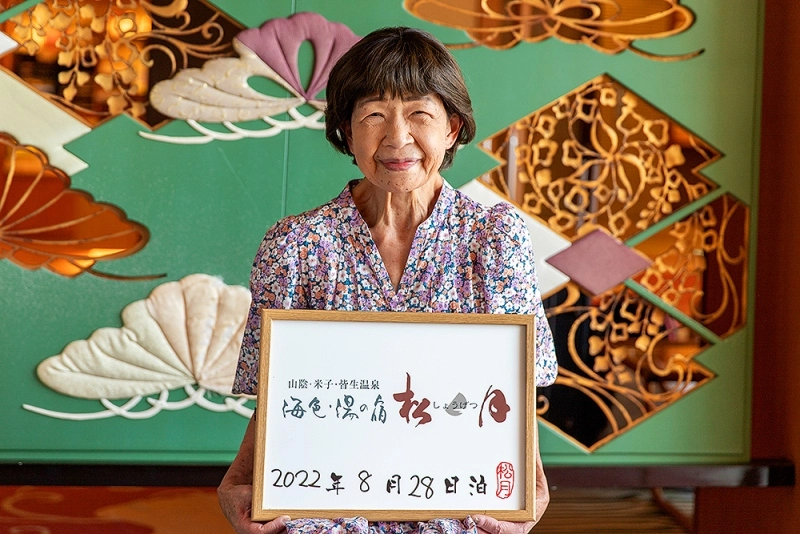 山陰・米子・皆生温泉
海色・湯の宿 松月
しょうげつ
2022年 8月28日泊
松月